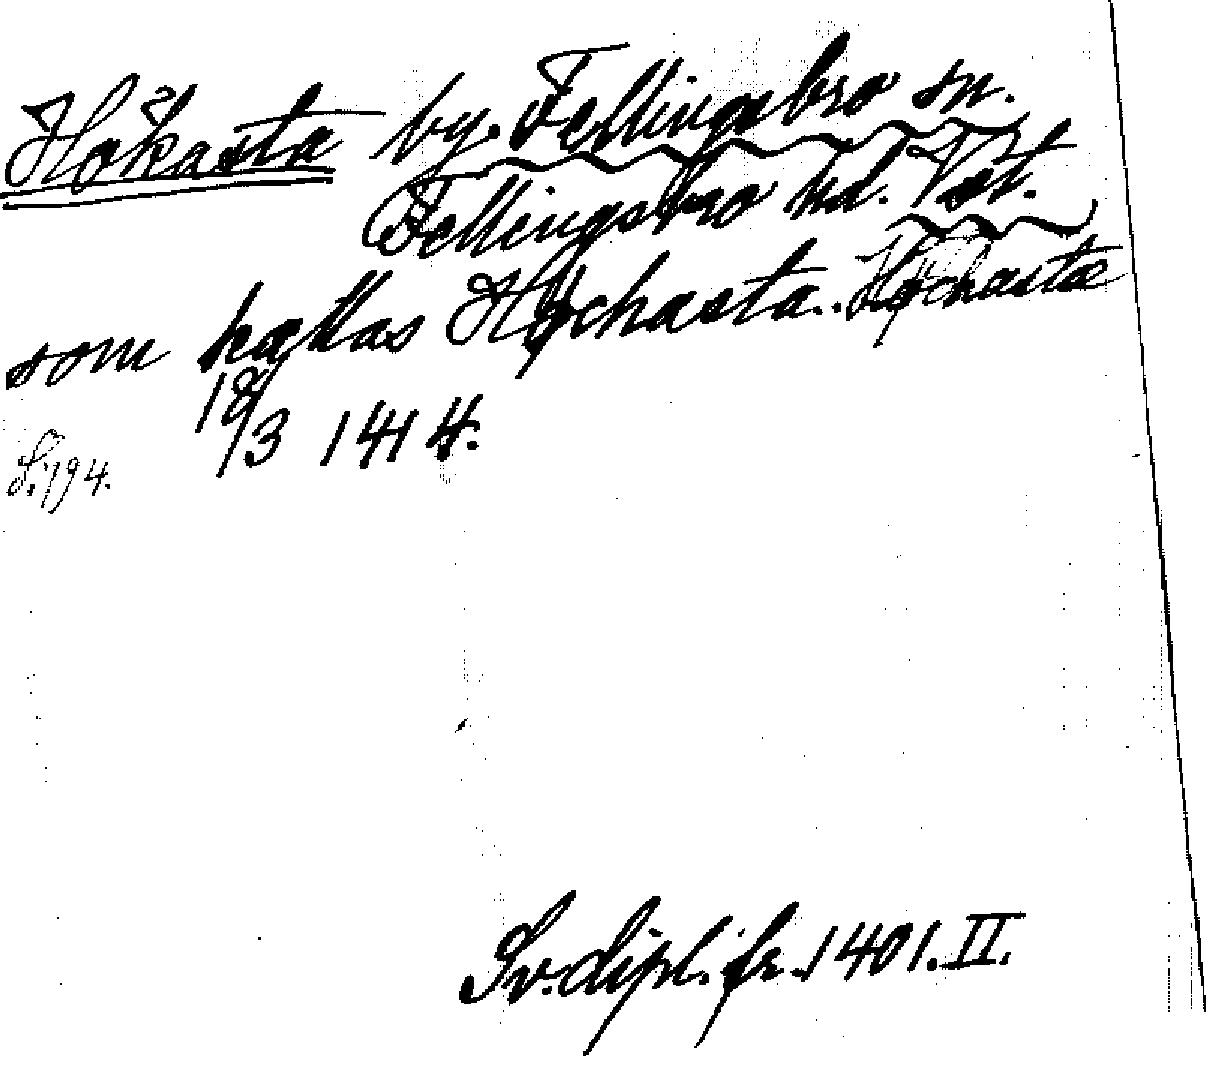 Hökasta by. Fellingsbro sn.
Fellingsbro hd. Vst.
som kallas Høchasta.. Høchasta
18/3 1414.
S. 194.
Sv. dipl. fr. 1401. II.